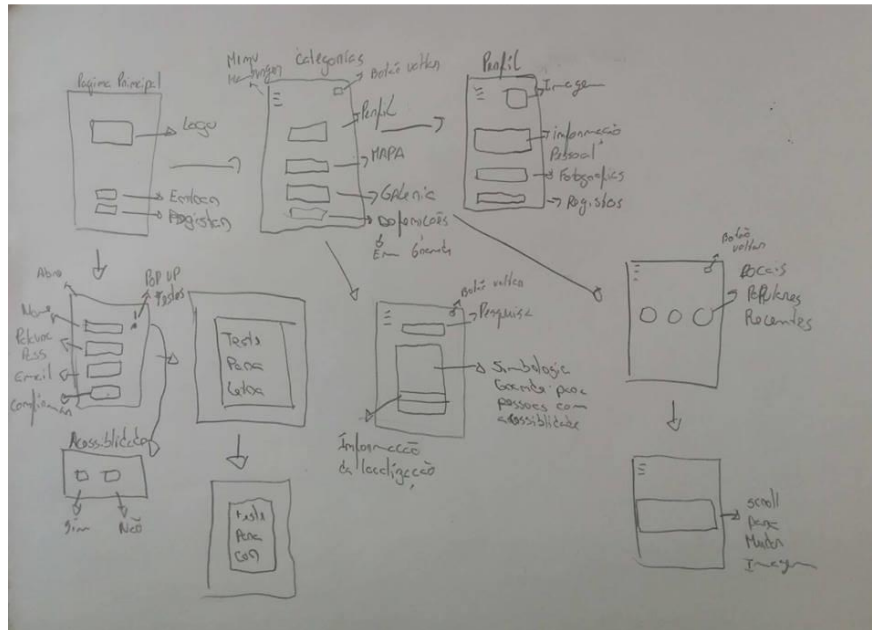 Pagina Principal
Logo
Entrar
Registar
Menu
Hamburger
Categorias
Botão voltar
Perfil
MAPA
Galeria
Perfil
Imagem
informação
Pessoal
Fotografias
Registos
Abre
Pop UP
testes
Nome
Pass
Email
Confirmar
Acessiblidade
Sim
Não
Teste
Para
Letra
teste
Para
Cor
Botão voltar
Pesquisa
Simbologia
pessoas com
acessiblidade
Informação
da localização
Botão
voltar
Locais
Populares
Recentes
scroll
para
Mudar
Imagem